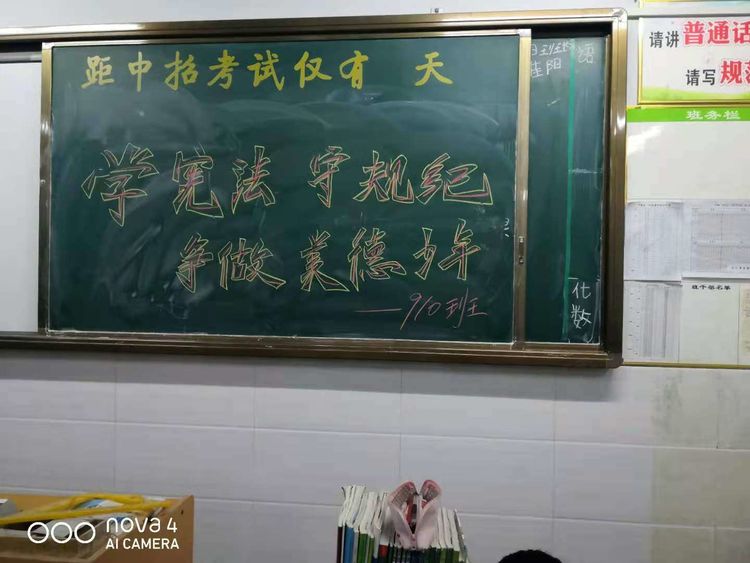 距中招考试仅有 天
学宪法 守规纪
争做美德少年
——910班
语
化
数
请讲普通话
请写规范
班务栏
班干部名单
nova 4
AI CAMERA